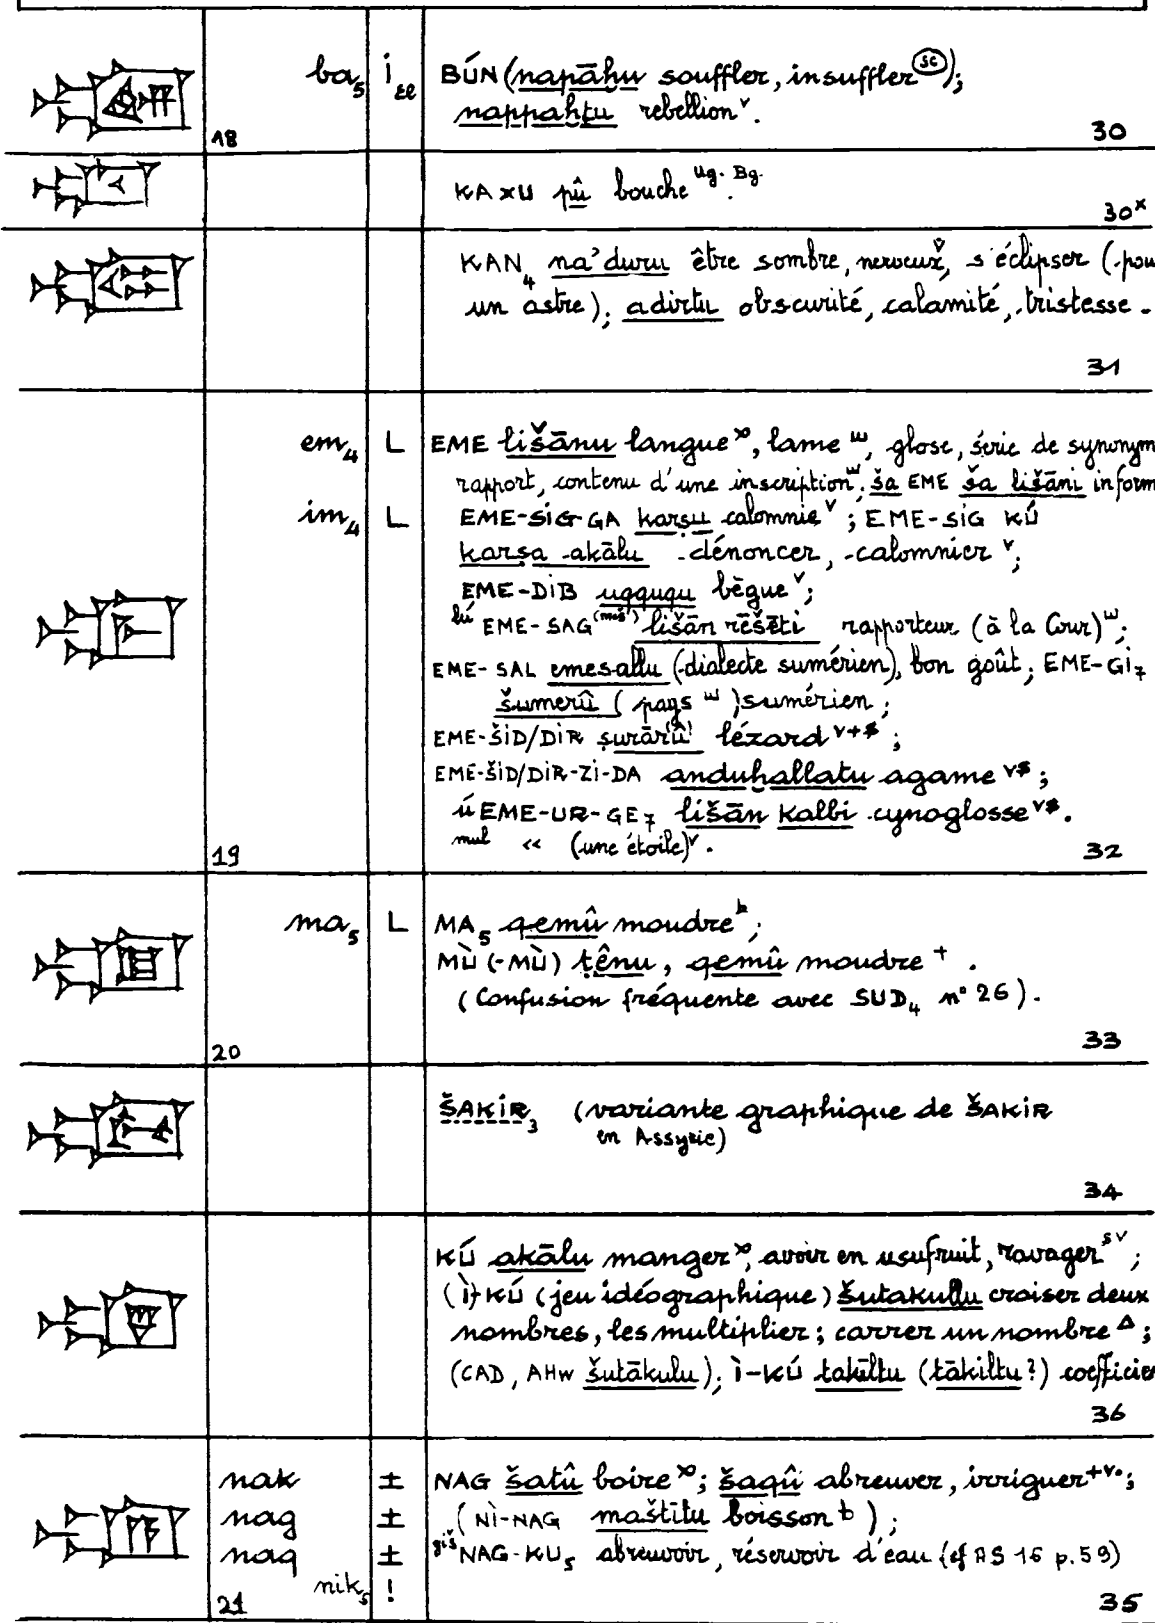 ba₅ i ₑₑ BÚN (napāḫu souffler, insuffler (sc));
nappaḫtu rebellion ᵛ.
18 30
KA×U pû bouche Ug. Bg.
30ˣ
KAN₄ na'duru être sombre, nerveux ᵛ, s'éclipser (pou
un astre); adirtu obscurité, calamité, tristesse.
31
em₄ L EME lišānu langue ˣ, lame ʷ, glose, série de synonym
rapport, contenu d'une inscription ʷ; ša EME ša lišāni inform
im₄ L EME-SIG-GA karṣu calomnie ᵛ; EME-SIG KÚ
karṣa akālu dénoncer, calomnier ᵛ;
EME-DIB uqququ bègue ᵛ;
lú EME-SAG(meš) lišān rēšēti rapporteur (à la Cour) ʷ;
EME-SAL emesallu (dialecte sumérien), bon goût; EME-GI₇
šumerû (pays ʷ) sumérien;
EME-ŠID/DIR ṣurārû lézard ᵛ⁺$;
EME-ŠID/DIR-ZI-DA anduḫallatu agame ᵛ$;
ú EME-UR-GE₇ lišān kalbi cynoglosse ᵛ$.
mul « (une étoile) ᵛ.
19 32
ma₅ L MA₅ qemû moudre ᵇ;
MÙ (-MÙ) ṭênu, qemû moudre ⁺.
(Confusion fréquente avec SUD₄ n° 26).
20 33
ŠAKIR₃ (variante graphique de ŠAKIR
en Assyrie)
34
KÚ akālu manger ˣ, avoir en usufruit, ravager ˢᵛ;
(Ì)-KÚ (jeu idéographique) šutakullu croiser deux
nombres, les multiplier; carrer un nombre Δ;
(CAD, AHw šutākulu); Ì-KÚ takīltu (tākiltu?) coefficien
36
nak ± NAG šatû boire ˣ; šaqû abreuver, irriguer ⁺ᵛ·;
nag ± (NÌ-NAG maštītu boisson ᵇ);
naq ± giš NAG-KU₅ abreuvoir, réservoir d'eau (cf AS 16 p.59)
nik₅ !
21 35